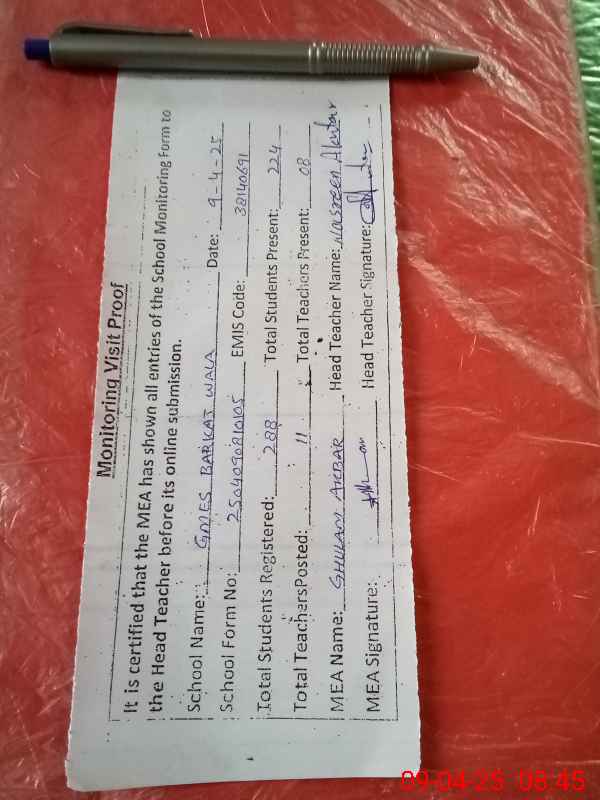 Monitoring Visit Proof
It is certified that the MEA has shown all entries of the School Monitoring Form to
the Head Teacher before its online submission.
School Name: GMES BARKAT WALA Date: 9-4-25
School Form No: 2504090810105 EMIS Code: 38140691
Total Students Registered: 288 Total Students Present: 224
Total TeachersPosted: 11 Total Teachers Present: 08
MEA Name: GHULAM AKBAR Head Teacher Name: Nasreen Akhtar
MEA Signature: Head Teacher Signature:
09-04-25 08:45